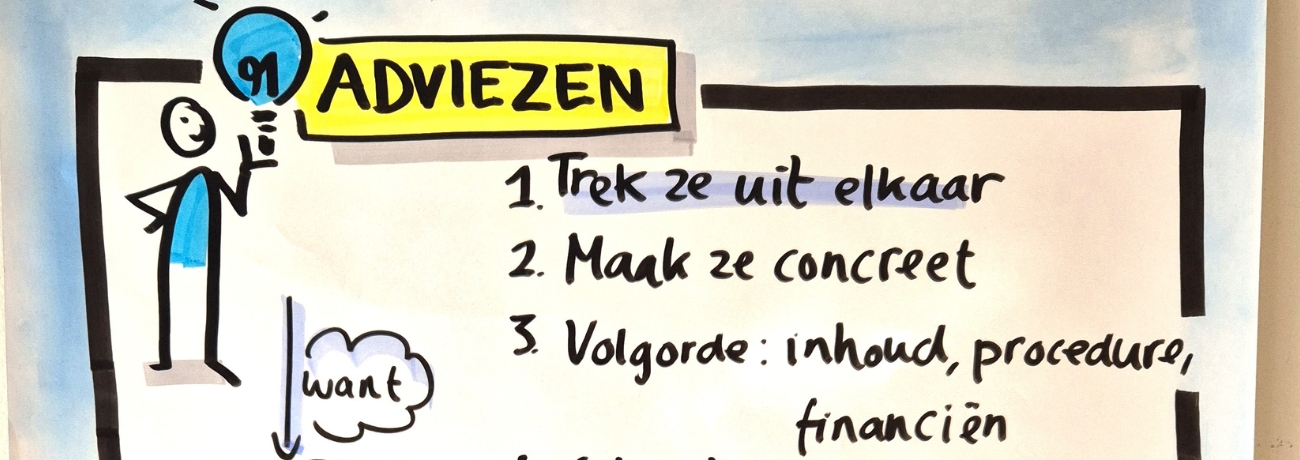 ADVIEZEN
1. Trek ze uit elkaar
2. Maak ze concreet
3. Volgorde: inhoud, procedure,
financiën
want